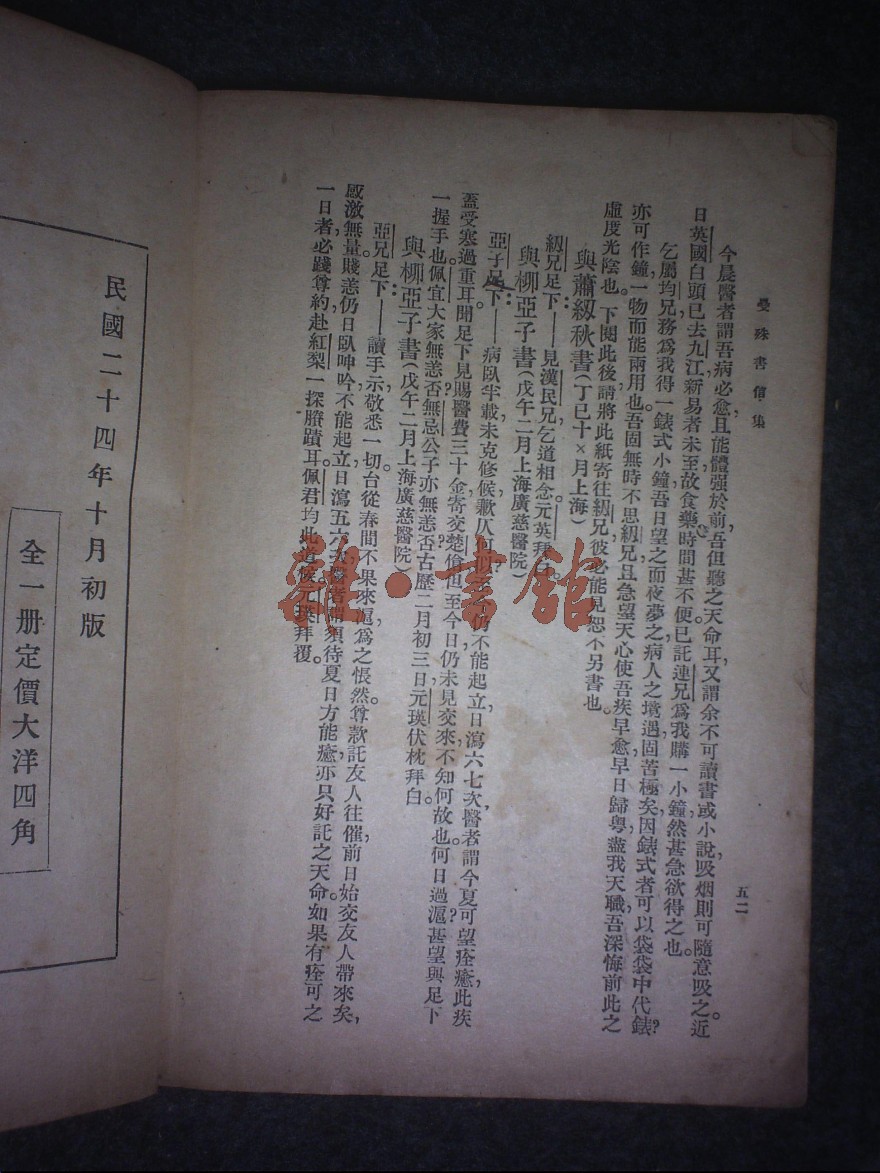 曼殊書信集
五二
今晨醫者謂吾病必愈，且能體强於前，吾但聽之天命耳，又謂余不可讀書或小說，吸烟則可隨意吸之。近
日英國白頭已去九江，新易者未至，故食藥時間甚不便。已託連兄爲我購一小鐘，然甚急欲得之也。
乞屬均兄務爲我得一錶式小鐘，吾日望之而夜夢之，病人之境遇固苦極矣。因錶式者可以袋袋中代錶，
亦可作鐘，一物而能兩用也。吾固無時不思紉兄，且急望天心使吾疾早愈，早日歸粤盡我天職，吾深悔前此之
虛度光陰也。下閱此後，請將此紙寄往紉兄，彼必能見恕不另書也。
與蕭紉秋書（丁巳十×月上海）
紉兄足下——見漢民兄乞道相念。元英拜白。
與柳亞子書（戊午二月上海廣慈醫院）
亞子足下——病臥半載，未克修候，歉仄何似？至今仍不能起立，日瀉六七次，醫者謂今夏可望痊癒。此疾
蓋受寒過重耳。聞足下見賜醫費三十金寄交楚傖，但至今日仍未見交來，不知何故也。何日過滬？甚望與足下
一握手也。佩宜大家無恙否？無忌公子亦無恙否？古歷二月初三日，元瑛伏枕拜白。
與柳亞子書（戊午二月上海廣慈醫院）
亞兄足下：——讀手示，敬悉一切。台從春間不果來滬，爲之悵然。尊款託友人往催，前日始交友人帶來矣，
感激無量。賤恙仍日臥呻吟，不能起立，日瀉五六次，醫者謂須待夏日方能癒，亦只好託之天命。如果有痊可之
一日者，必踐尊約，赴紅梨一探勝蹟耳。佩君均此道候。元瑛拜覆。
民國二十四年十月初版
全一册定價大洋四角
雜·書館